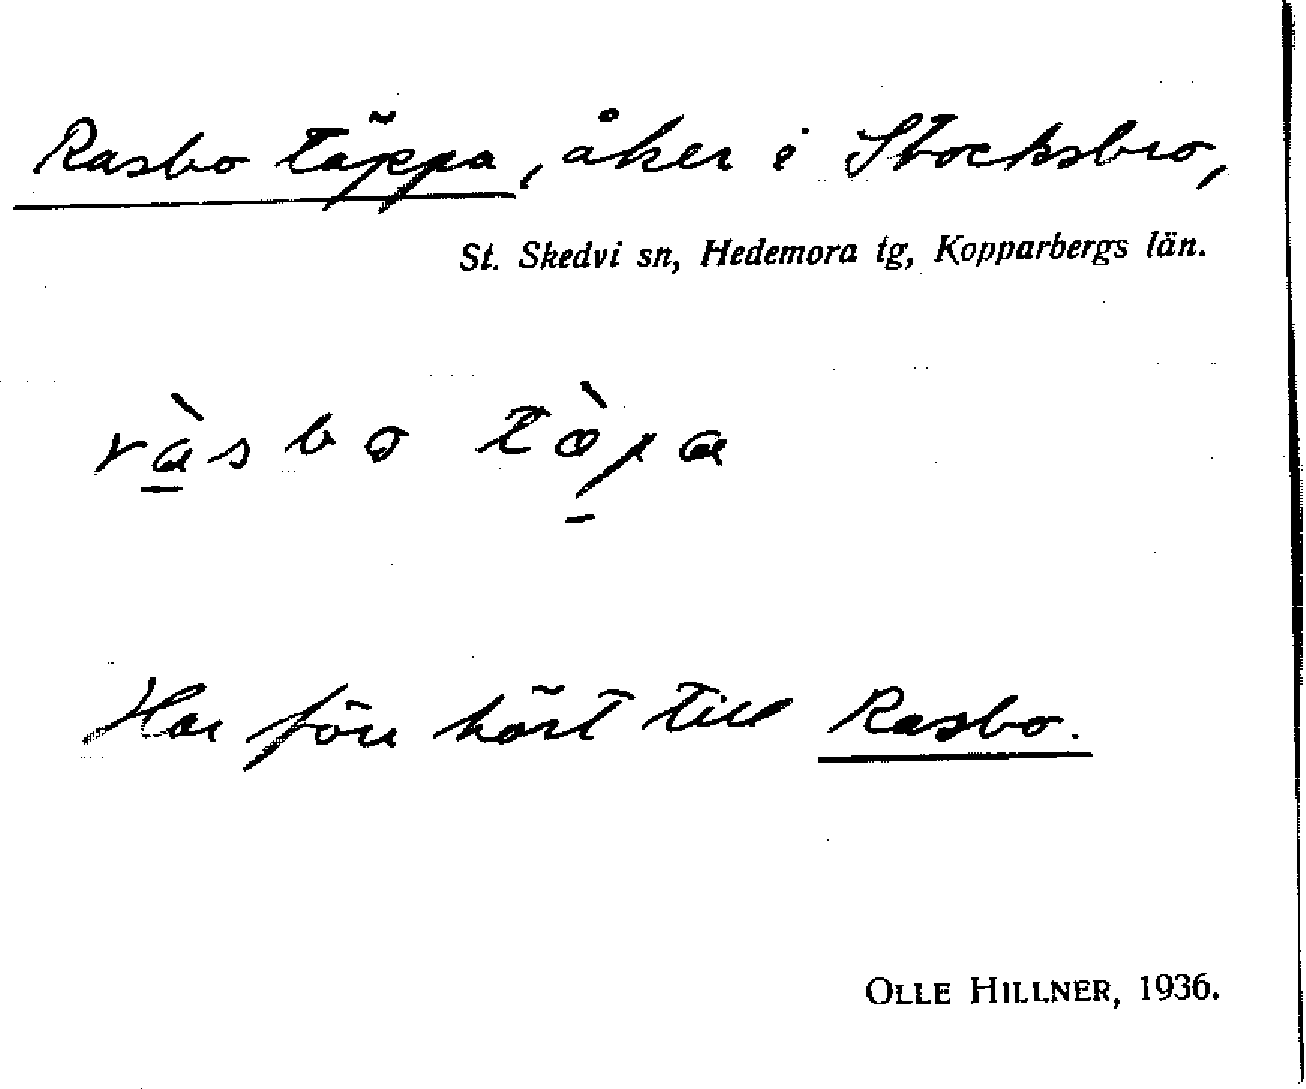 Rasbo täppa, åker i Stocksbro,
St. Skedvi sn, Hedemora tg, Kopparbergs län.
ràsbo
Har förr hört till Rasbo.
OLLE HILLNER, 1936.